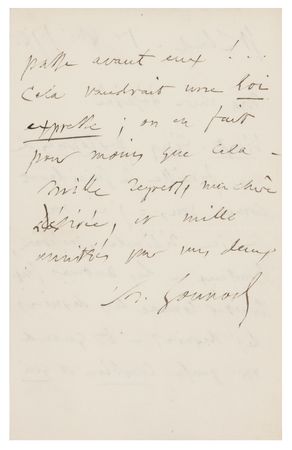 passe avant eux ! ..
Cela vaudrait une loi
expresse ; on en fait
pour moins que cela –
mille regrets, ma chère
Désirée, et mille
amitiés par nous deux
Ch. Gounod